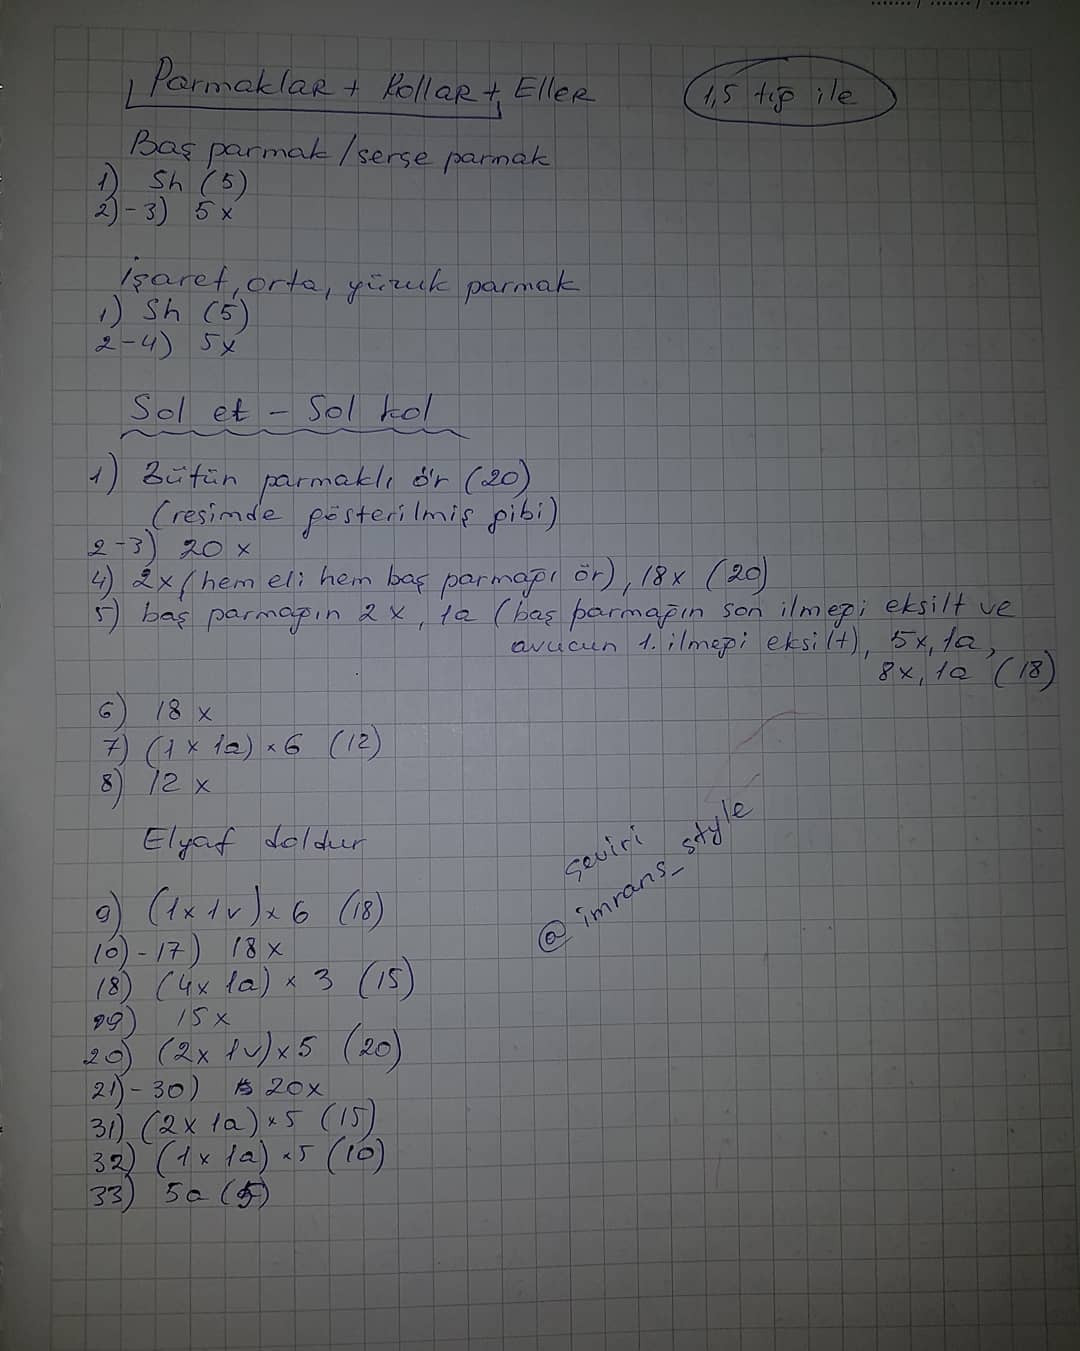 Parmaklar + Kollar + Eller
1,5 tığ ile
Baş parmak / serçe parmak
1) Sh (5)
2)-3) 5x
işaret, orta, yüzük parmak
1) Sh (5)
2-4) 5x
Sol el - Sol kol
1) Bütün parmaklı ör (20)
(resimde gösterilmiş gibi)
2-3) 20 x
4) 2x (hem eli hem baş parmağı ör), 18x (20)
5) baş parmağın 2x, 1a (baş parmağın son ilmeği eksilt ve
avucun 1. ilmeği eksilt), 5x, 1a,
8x, 1a (18)
6) 18 x
7) (1x 1a) × 6 (12)
8) 12 x
Elyaf doldur
9) (1x 1v) × 6 (18)
10)-17) 18x
18) (4x 1a) × 3 (15)
19) 15x
20) (2x 1v) × 5 (20)
21)-30) 20x
31) (2x 1a) × 5 (15)
32) (1x 1a) × 5 (10)
33) 5a (5)
çeviri
@imrans_style